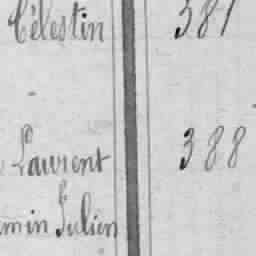 Célestin 387
Laurent 388
min Julien